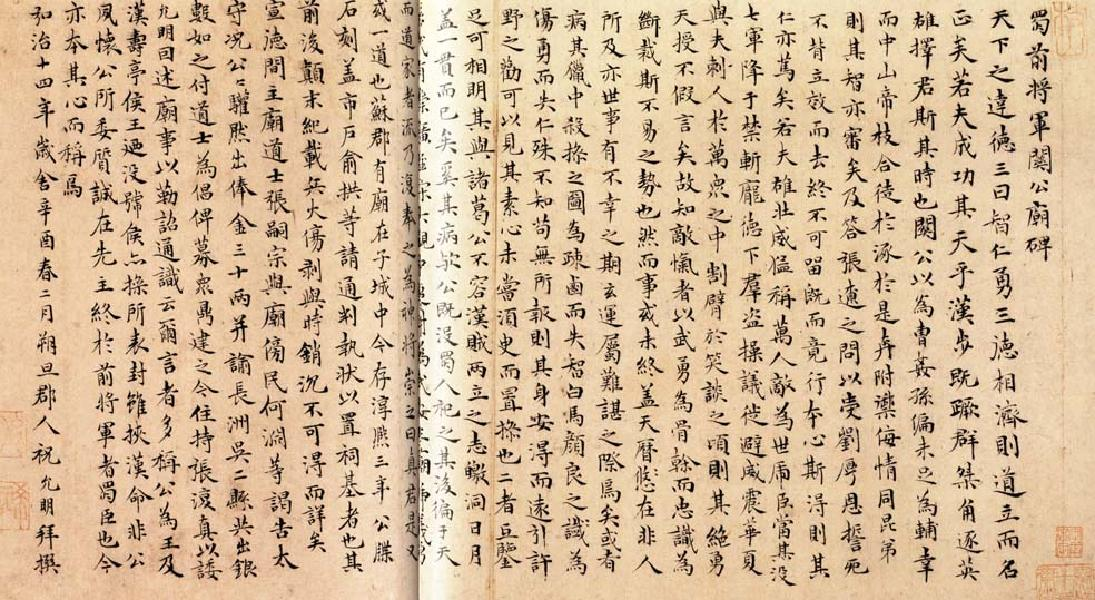 蜀前將軍關公廟碑
天下之達德三曰智仁勇三德相濟則道立而名
正矣若夫成功其天乎漢步既蹶群桀角逐英
雄擇君斯其時也關公以為曹姦孫偏未足為輔幸
而中山帝枝合徒於涿於是奔附禦侮情同昆弟
則其智亦審矣及答張遼之問以受劉厚恩誓死
不背立效而去終不可留既而竟行本心斯得則其
仁亦篤矣若夫雄壯威猛稱萬人敵為世虎臣當其沒
七軍降于禁斬龐德下羣盜操議徙避威震華夏
與夫刺人於萬眾之中割臂於笑談之頃則其絕勇
天授不假言矣故知敵愾者以武勇為骨幹而忠識為
斷裁斯不易之勢也然而事或未終蓋天曆悠在非人
所及亦世事有不幸之期玄運屬難諶之際焉矣或者
病其獵中殺操之圖為疎鹵而失智白馬顏良之識為
傷勇而失仁殊不知苟無所報則其身安得而遠計許
野之勸可以見其素心未當酒史而置操也二者亟鑒
足可相明其與諸葛公不容漢賊兩立之志皦洞日月
蓋一貫而已矣奚其病歟公既沒蜀人祀之其後徧于天
而道家者流乃復奉之為神將崇之曰真君是又
或一道也蘇郡有廟在子城中今存淳熙三年公牒
石刻蓋市戶俞拱等請通判執狀以置祠基者也其
前後顛末紀載兵火傷剥與時銷沉不可得而詳矣
宣德間主廟道士張嗣宗與廟傍民何淵等謁告太
守況公公矍然出俸金三十兩并諭長洲吳二縣共出銀
數如之付道士為倡俾募眾鼎建之今住持張復真以諉
允明囘述廟事以勒詔通識云爾言者多稱公為王及
漢壽亭侯王迺沒號侯亦操所表封雖挾漢命非公
夙懷公所委質誠在先主終於前將軍者蜀臣也今
亦本其心而稱焉
弘治十四年歲舍辛酉春二月朔旦郡人祝允明拜撰